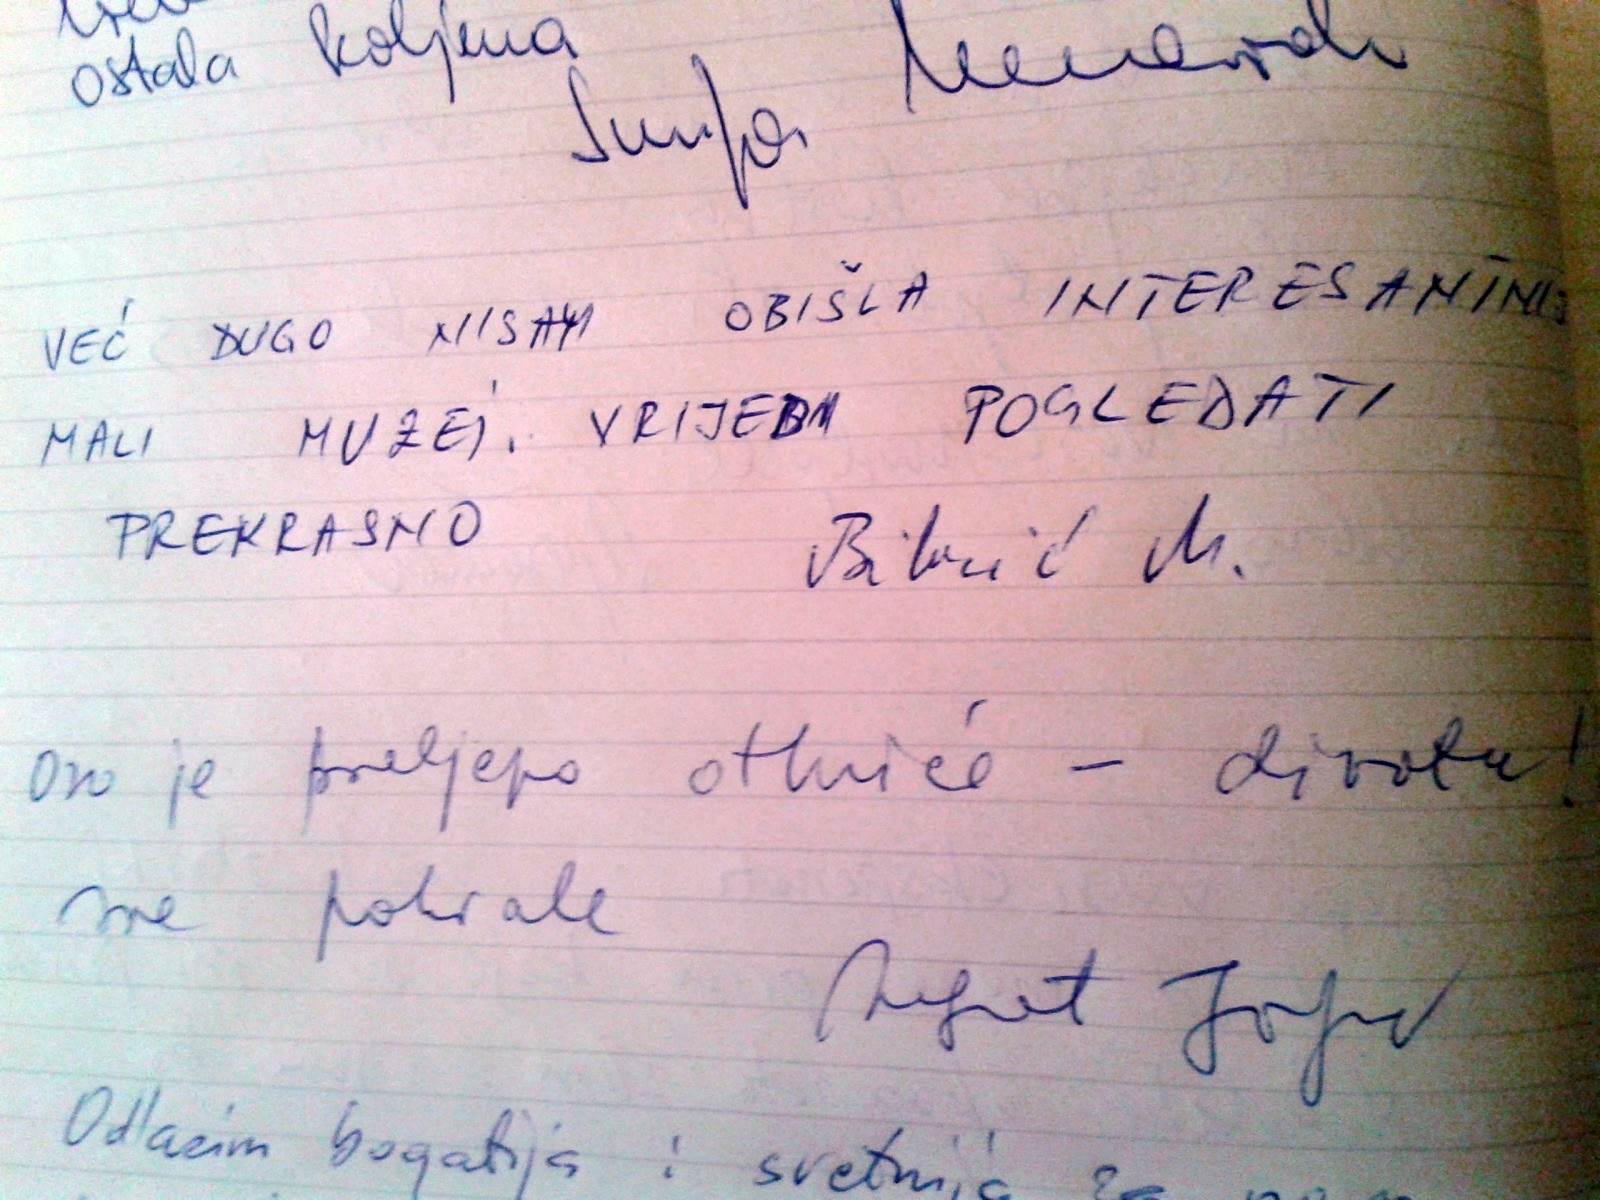 ostala koljena
VEĆ DUGO NISAM OBIŠLA INTERESANTNIJ
MALI MUZEJ. VRIJEDI POGLEDATI
PREKRASNO
M.
Ovo je preljepo otkriće - divota!
Sve pohvale
Odlazim bogatija i sretnija za